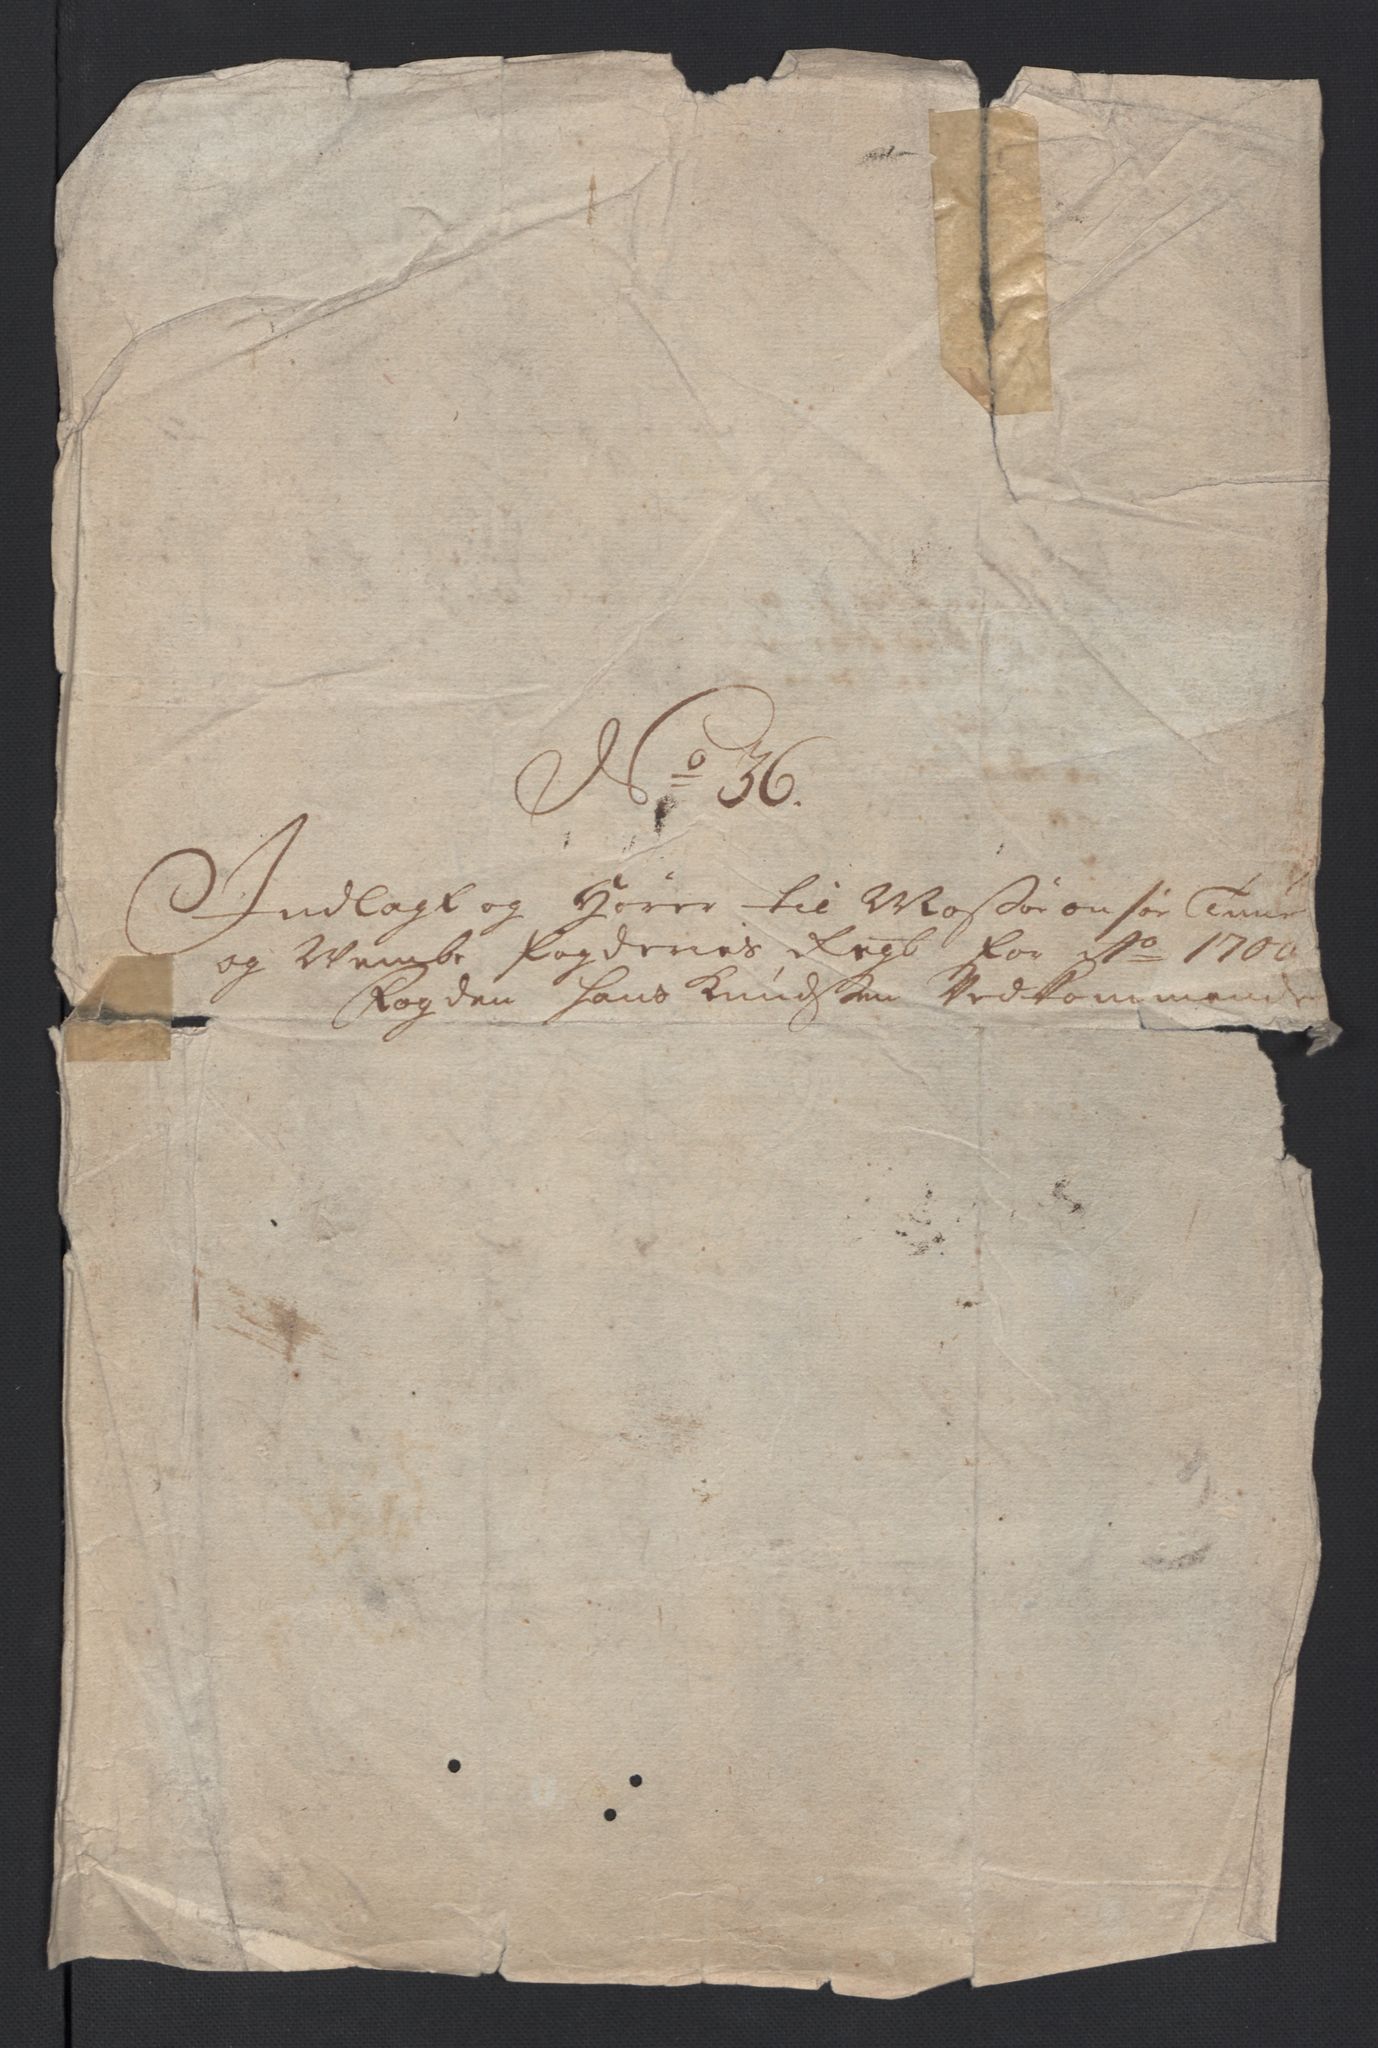 No 36.
Indlagt og Hører til Moss Tune
og Wembe fogderies Regb for Ao 1700
fogden Hans Knudsen Vedkommende